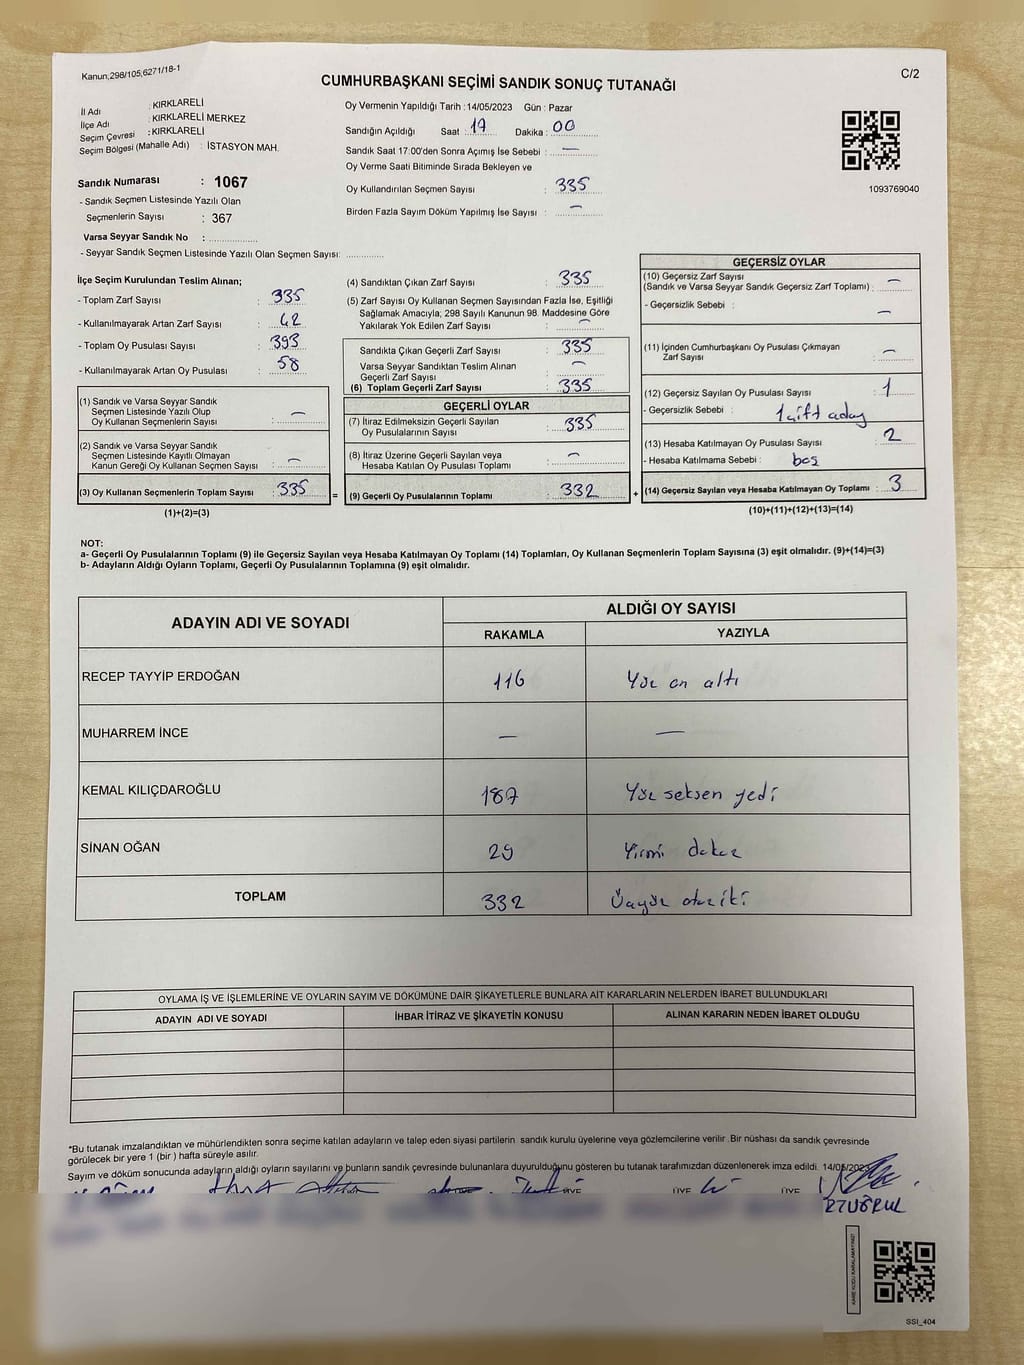 Kanun,298/105,6271/18-1
C/2
CUMHURBAŞKANI SEÇİMİ SANDIK SONUÇ TUTANAĞI
İl Adı : KIRKLARELİ
İlçe Adı : KIRKLARELİ MERKEZ
Seçim Çevresi : KIRKLARELİ
Seçim Bölgesi (Mahalle Adı) : İSTASYON MAH.
Sandık Numarası : 1067
- Sandık Seçmen Listesinde Yazılı Olan
Seçmenlerin Sayısı : 367
Varsa Seyyar Sandık No :
- Seyyar Sandık Seçmen Listesinde Yazılı Olan Seçmen Sayısı:
Oy Vermenin Yapıldığı Tarih : 14/05/2023 Gün : Pazar
Sandığın Açıldığı Saat : 17 Dakika : 00
Sandık Saat 17:00'den Sonra Açımış İse Sebebi : —
Oy Verme Saati Bitiminde Sırada Bekleyen ve
Oy Kullandırılan Seçmen Sayısı : 335
Birden Fazla Sayım Döküm Yapılmış İse Sayısı : —
1093769040
İlçe Seçim Kurulundan Teslim Alınan;
- Toplam Zarf Sayısı : 335
- Kullanılmayarak Artan Zarf Sayısı : 42
- Toplam Oy Pusulası Sayısı : 393
- Kullanılmayarak Artan Oy Pusulası : 58
(1) Sandık ve Varsa Seyyar Sandık
Seçmen Listesinde Yazılı Olup
Oy Kullanan Seçmenlerin Sayısı : —
(2) Sandık ve Varsa Seyyar Sandık
Seçmen Listesinde Kayıtlı Olmayan
Kanun Gereği Oy Kullanan Seçmen Sayısı : —
(3) Oy Kullanan Seçmenlerin Toplam Sayısı : 335
(1)+(2)=(3)
=
(4) Sandıktan Çıkan Zarf Sayısı : 335
(5) Zarf Sayısı Oy Kullanan Seçmen Sayısından Fazla İse, Eşitliği
Sağlamak Amacıyla; 298 Sayılı Kanunun 98. Maddesine Göre
Yakılarak Yok Edilen Zarf Sayısı : —
Sandıkta Çıkan Geçerli Zarf Sayısı : 335
Varsa Seyyar Sandıktan Teslim Alınan
Geçerli Zarf Sayısı : —
(6) Toplam Geçerli Zarf Sayısı : 335
GEÇERLİ OYLAR
(7) İtiraz Edilmeksizin Geçerli Sayılan
Oy Pusulalarının Sayısı : 335
(8) İtiraz Üzerine Geçerli Sayılan veya
Hesaba Katılan Oy Pusulası Toplamı : —
(9) Geçerli Oy Pusulalarının Toplamı : 332
+
GEÇERSİZ OYLAR
(10) Geçersiz Zarf Sayısı
(Sandık ve Varsa Seyyar Sandık Geçersiz Zarf Toplamı) : —
- Geçersizlik Sebebi : —
(11) İçinden Cumhurbaşkanı Oy Pusulası Çıkmayan
Zarf Sayısı : —
(12) Geçersiz Sayılan Oy Pusulası Sayısı : 1
- Geçersizlik Sebebi : 1 çift aday
(13) Hesaba Katılmayan Oy Pusulası Sayısı : 2
- Hesaba Katılmama Sebebi : boş
(14) Geçersiz Sayılan veya Hesaba Katılmayan Oy Toplamı : 3
(10)+(11)+(12)+(13)=(14)
NOT:
a- Geçerli Oy Pusulalarının Toplamı (9) ile Geçersiz Sayılan veya Hesaba Katılmayan Oy Toplamı (14) Toplamları, Oy Kullanan Seçmenlerin Toplam Sayısına (3) eşit olmalıdır. (9)+(14)=(3)
b- Adayların Aldığı Oyların Toplamı, Geçerli Oy Pusulalarının Toplamına (9) eşit olmalıdır.
ADAYIN ADI VE SOYADI
ALDIĞI OY SAYISI
RAKAMLA YAZIYLA
RECEP TAYYİP ERDOĞAN 116 Yüz on altı
MUHARREM İNCE — —
KEMAL KILIÇDAROĞLU 187 Yüz seksen yedi
SİNAN OĞAN 29 Yirmi dokuz
TOPLAM 332 Üçyüz otuziki
OYLAMA İŞ VE İŞLEMLERİNE VE OYLARIN SAYIM VE DÖKÜMÜNE DAİR ŞİKAYETLERLE BUNLARA AİT KARARLARIN NELERDEN İBARET BULUNDUKLARI
ADAYIN ADI VE SOYADI İHBAR İTİRAZ VE ŞİKAYETİN KONUSU ALINAN KARARIN NEDEN İBARET OLDUĞU
*Bu tutanak imzalandıktan ve mühürlendikten sonra seçime katılan adayların ve talep eden siyasi partilerin sandık kurulu üyelerine veya gözlemcilerine verilir .Bir nüshası da sandık çevresinde
görülecek bir yere 1 (bir ) hafta süreyle asılır.
Sayım ve döküm sonucunda adayların aldığı oyların sayılarını ve bunların sandık çevresinde bulunanlara duyurulduğunu gösteren bu tutanak tarafımızdan düzenlenerek imza edildi. 14/05/2023
ÜYE ÜYE ÜYE
KARE KODU KARALAMAYINIZ!
SSI_404